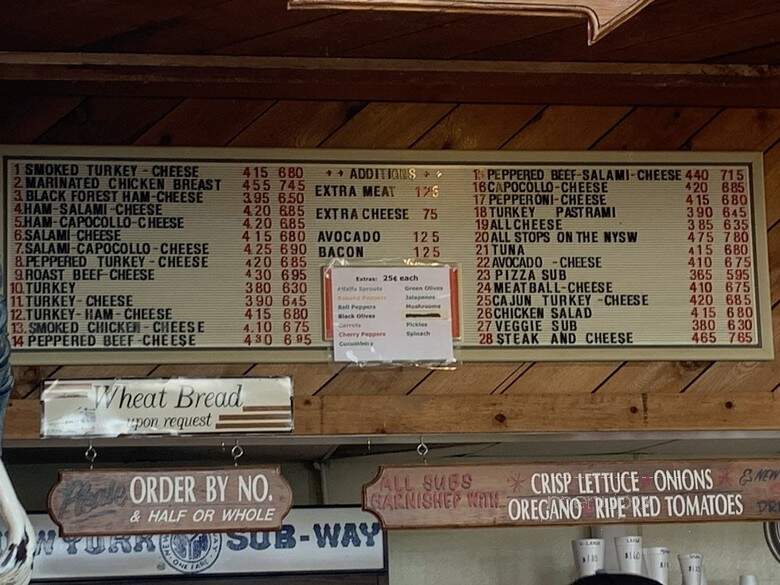 1 SMOKED TURKEY - CHEESE 4 15 6 80
2. MARINATED CHICKEN BREAST 4 55 7 45
3. BLACK FOREST HAM-CHEESE 3.95 6.50
4.HAM-SALAMI-CHEESE 4.20 6.85
5.HAM-CAPOCOLLO-CHEESE 4.20 6.85
6.SALAMI-CHEESE 4 15 6 80
7.SALAMI-CAPOCOLLO-CHEESE 4.25 6 90
8.PEPPERED TURKEY-CHEESE 4 20 6 85
9.ROAST BEEF-CHEESE 4 30 6 95
10.TURKEY 3 80 6 30
11.TURKEY-CHEESE 3 90 6 45
12.TURKEY-HAM-CHEESE 4 15 6 80
13.SMOKED CHICKEN-CHEESE 4.10 6 75
14 PEPPERED BEEF-CHEESE 4 30 6 95
ADDITIONS
EXTRA MEAT 1 25
EXTRA CHEESE 75
AVOCADO 1 2 5
BACON 1 2 5
Extras: 25¢ each
Alfalfa Sprouts Green Olives
Banana Peppers Jalapenos
Bell Peppers Mushrooms
Black Olives
Carrots Pickles
Cherry Peppers Spinach
Cucumbers
PEPPERED BEEF-SALAMI-CHEESE 4 40 7 15
16 CAPOCOLLO-CHEESE 4 20 6 85
17 PEPPERONI-CHEESE 4 15 6 80
18 TURKEY PASTRAMI 3 90 6 45
19 ALL CHEESE 3 85 6 35
20 ALL STOPS ON THE NYSW 4 75 7 80
21 TUNA 4 15 6 80
22 AVOCADO -CHEESE 4 10 6 75
23 PIZZA SUB 3 65 5 95
24 MEATBALL-CHEESE 4 10 6 75
25 CAJUN TURKEY -CHEESE 4 20 6 85
26 CHICKEN SALAD 4 15 6 80
27 VEGGIE SUB 3 80 6 30
28 STEAK AND CHEESE 4 65 7 65
Wheat Bread
upon request
Please ORDER BY NO.
& HALF OR WHOLE
ALL SUBS
GARNISHED WITH
CRISP LETTUCE - ONIONS
OREGANO - RIPE RED TOMATOES
& NEW
W YORK SUB-WAY